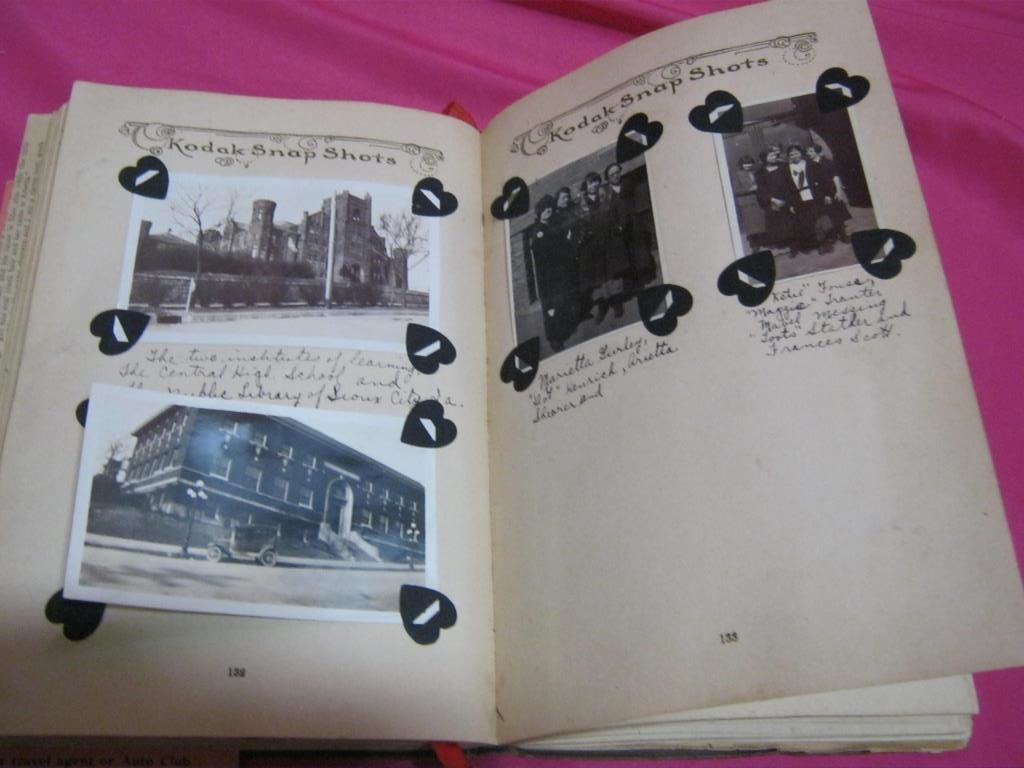 Kodak Snap Shots
The two institutes of learning,
The Central High School and
the Public Library of Sioux City, Ia.
132
Kodak Snap Shots
Marietta
"Dot" Henrich, Arietta
Shearer and
"Katie"
"Maggie" Tranter
"Mabel" Messing
"Toots" Stather and
Frances Scott.
133
travel agent or Auto Club